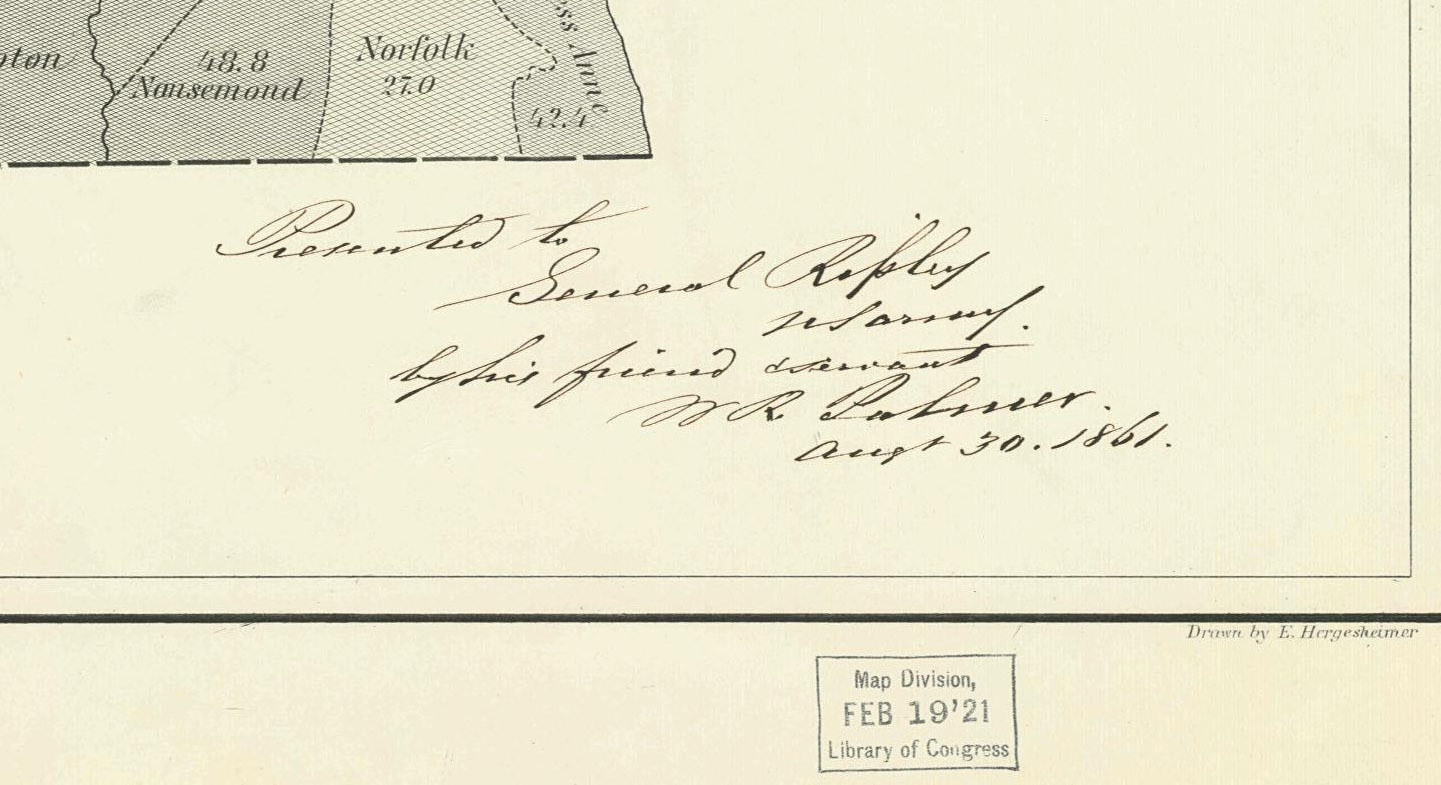 48.8
Nansemond
Norfolk
27.0
Anne
42.4
Presented to
General Ripley
US army.
by his friend & servant
W R Palmer.
Augt 30. 1861.
Drawn by E. Hergesheimer
Map Division,
FEB 19'21
Library of Congress